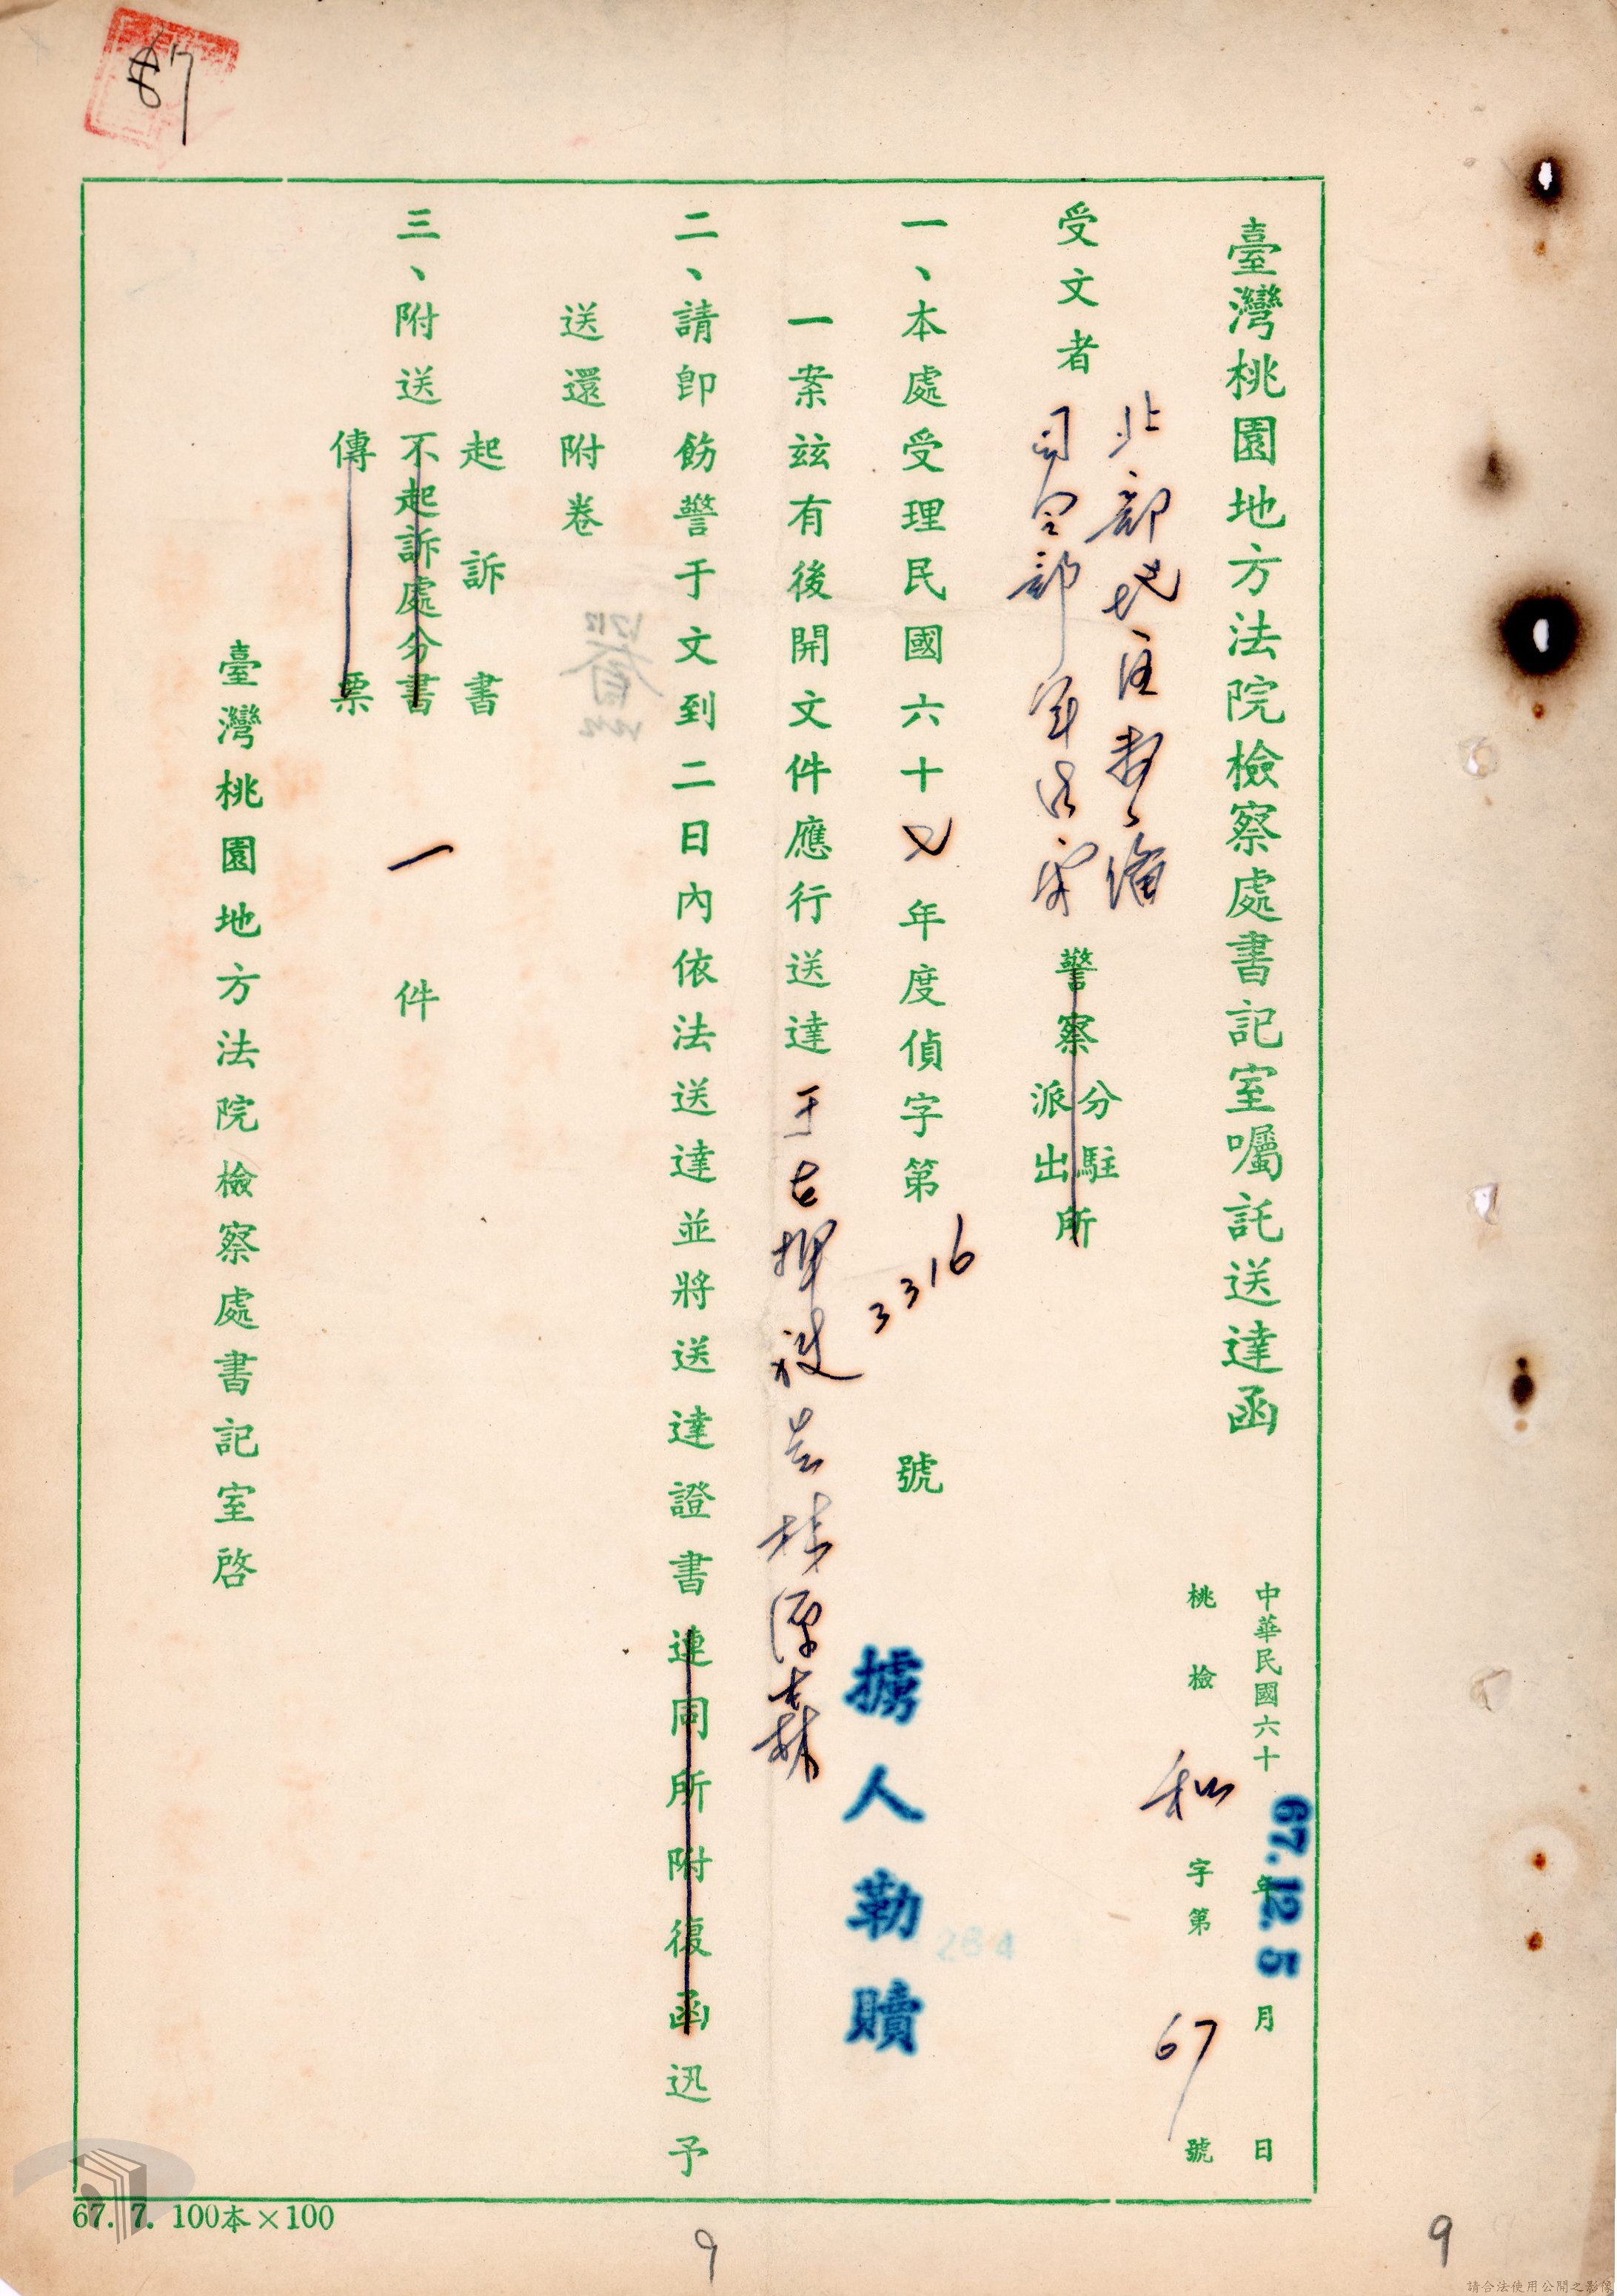 臺灣桃園地方法院檢察處書記室囑託送達函
中華民國六十 年 月 日
67.12.5
桃檢 和 字第 67 號
受文者 北部地區警備
司令部軍法室 警察分駐派出所
一、本處受理民國六十七年度偵字第3316號 擄人勒贖
一案玆有後開文件應行送達
二、請即飭警于文到二日內依法送達並將送達證書連同所附復函迅予
送還附卷
起訴書
三、附送不起訴處分書 一 件
傳票
臺灣桃園地方法院檢察處書記室啓
67. 7. 100本×100
87
9
9
請合法使用公開之影像